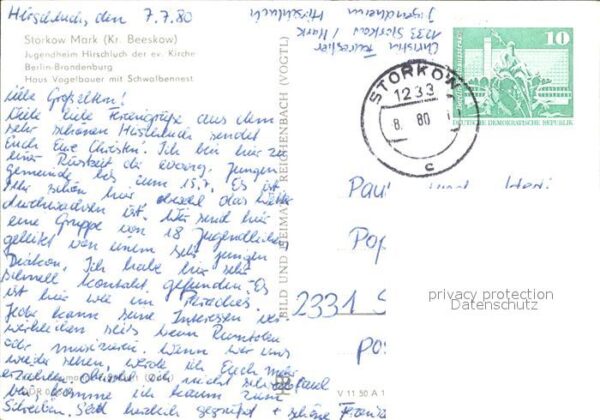 Hirschluch, den 7.7.80
Storkow Mark (Kr. Beeskow)
Jugendheim Hirschluch der ev. Kirche
Berlin-Brandenburg
Haus Vogelbauer mit Schwalbennest
Liebe Großeltern!
Viele liebe Feriengrüße aus dem
sehr schönen Hirschluch sendet
Euch Eure Christin. Ich bin hier zu
einer Rüstzeit die evang. Jungen
gemeinde bis zum 15.7. Es ist
sehr schön hier obwohl das Wetter
durchwachsen ist. Wir sind hier
eine Gruppe von 18 Jugendlichen
geleitet von einem sehr jungen
Diakon. Ich habe hier sehr
schnell Kontakt gefunden. Es
ist hier wie im Paradies.
Jeder kann seine Interessen ver
wirklichen seits beim
oder musizieren. Wenn wir uns
wieder sehen, werde ich Euch mehr
erzählen. Obwohl ich nicht
bin komme ich kaum zum
Schreiben. Seid herzlich gegrüßt
BILD UND HEIMAT REICHENBACH (VOGTL)
V 11 50 A 1
Christin
1233 Storkow / Mark
Jugendheim Hirschluch
STORKOW
1233
8. 80
c
10
DEUTSCHE DEMOKRATISCHE REPUBLIK
Pau
Pop
2331 S
Pos
privacy protection
Datenschutz